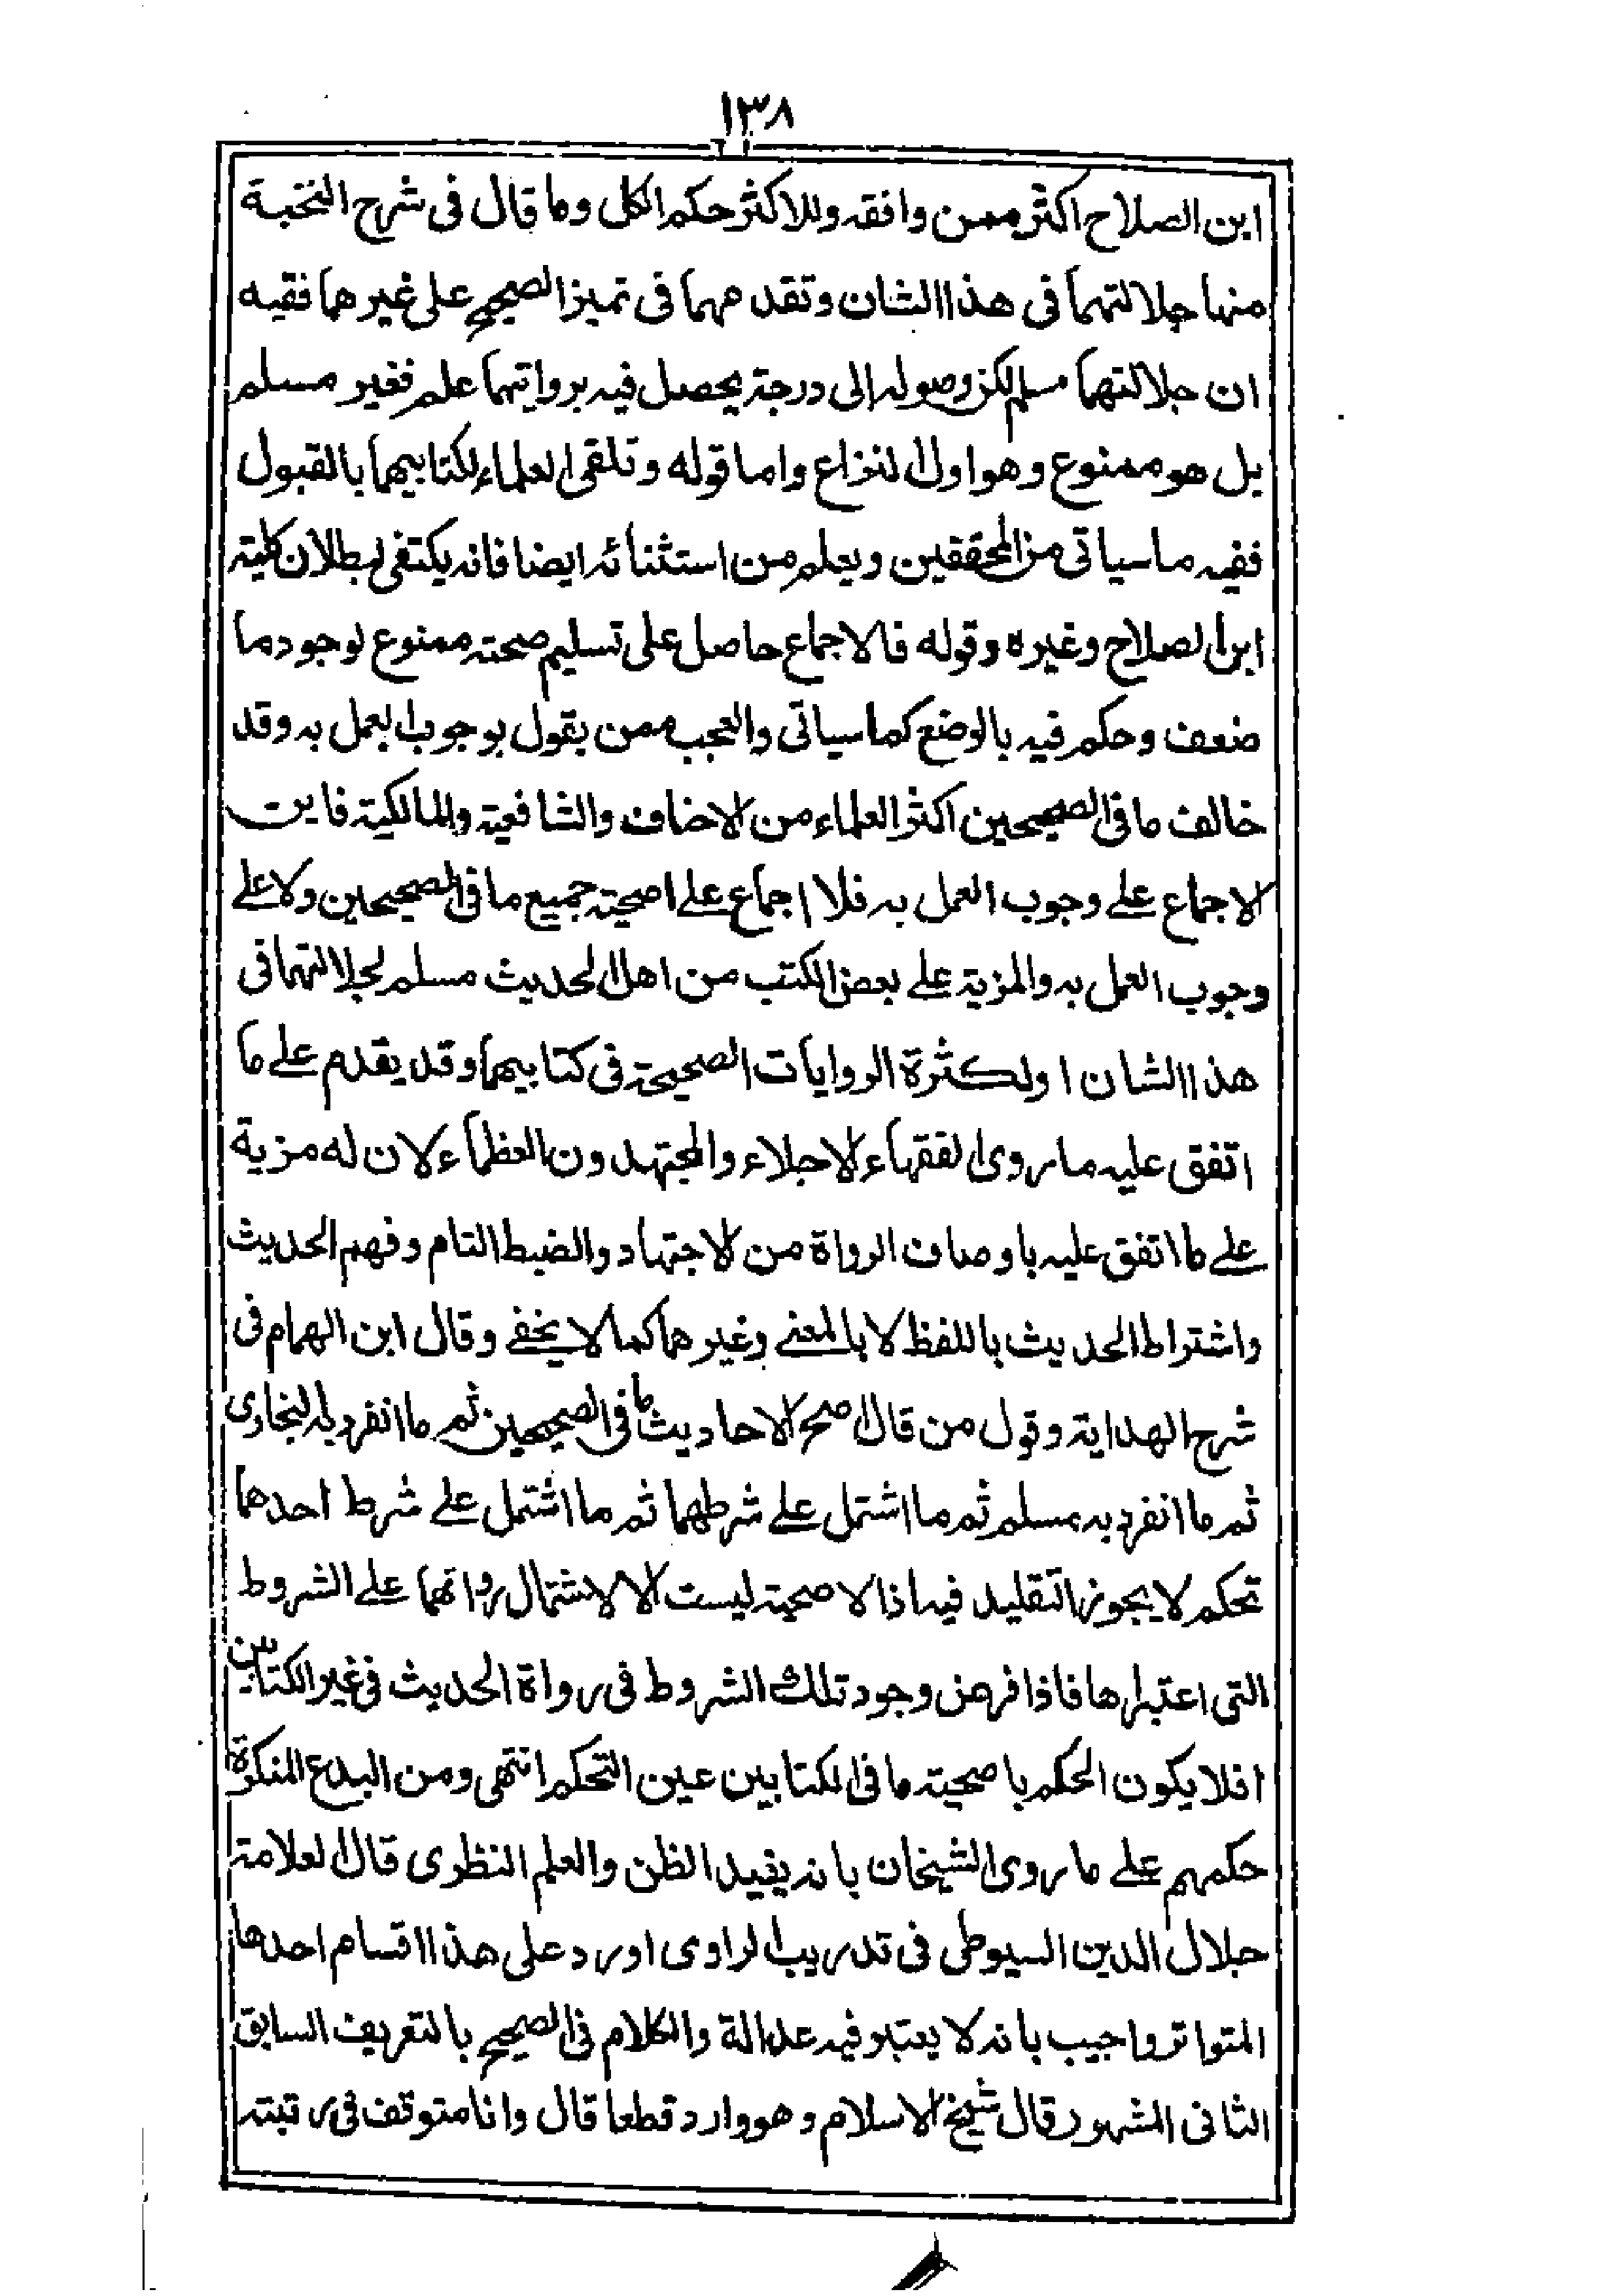 ١٣٨
ابن الصلاح اكثر ممن وافقه وللاكثر حكم الكل وما قال فى شرح النخبة
منها جلالتهما فى هذا الشان وتقدمهما فى تميز الصحيح على غيرهما فقيه
ان جلالتهما مسلم لكن وصوله الى درجة يحصل فيه بروايتهما علم فغير مسلم
بل هو ممنوع وهو اول النزاع واما قوله وتلقى العلماء لكتابيهما بالقبول
ففيه ما سياتى من المحققين ويعلم من استثنائه ايضا فانه يكتفى لبطلان كلية
ابن الصلاح وغيره وقوله فالاجماع حاصل على تسليم صحته ممنوع لوجود ما
ضعف وحكم فيه بالوضع كما سياتى والعجب ممن يقول بوجوب العمل به وقد
خالف ما فى الصحيحين اكثر العلماء من الاحناف والشافعية والمالكية فاين
الاجماع على وجوب العمل به فلا اجماع على اصحية جميع ما فى الصحيحين ولا على
وجوب العمل به والمزية على بعض الكتب من اهل الحديث مسلم لجلالتهما فى
هذا الشان او لكثرة الروايات الصحيحة فى كتابيهما وقد يقدم على ما
اتفق عليه ما روى الفقهاء الاجلاء والمجتهدون العظماء لان له مزية
على ما اتفق عليه باوصاف الرواة من الاجتهاد والضبط التام وفهم الحديث
واشتراط الحديث باللفظ لا بالمعنى وغيرهما كما لا يخفى وقال ابن الهمام فى
شرح الهداية وقول من قال اصح الاحاديث ما فى الصحيحين ثم ما انفرد به البخارى
ثم ما انفرد به مسلم ثم ما اشتمل على شرطهما ثم ما اشتمل على شرط احدهما
تحكم لا يجوز التقليد فيه اذ الاصحية ليست الا لاشتمال رواتهما على الشروط
التى اعتبراها فاذا فرض وجود تلك الشروط فى رواة الحديث فى غير الكتابين
افلا يكون الحكم باصحية ما فى الكتابين عين التحكم انتهى ومن البدع المنكرة
حكمهم على ما روى الشيخان بانه يفيد الظن والعلم النظرى قال العلامة
جلال الدين السيوطى فى تدريب الراوى اورد على هذا اقسام احدها
المتواتر واجيب بانه لا يعتبر فيه عدالة والكلام فى الصحيح بالتعريف السابق
الثانى المشهور قال شيخ الاسلام وهو وارد قطعا قال وانا متوقف فى رتبته